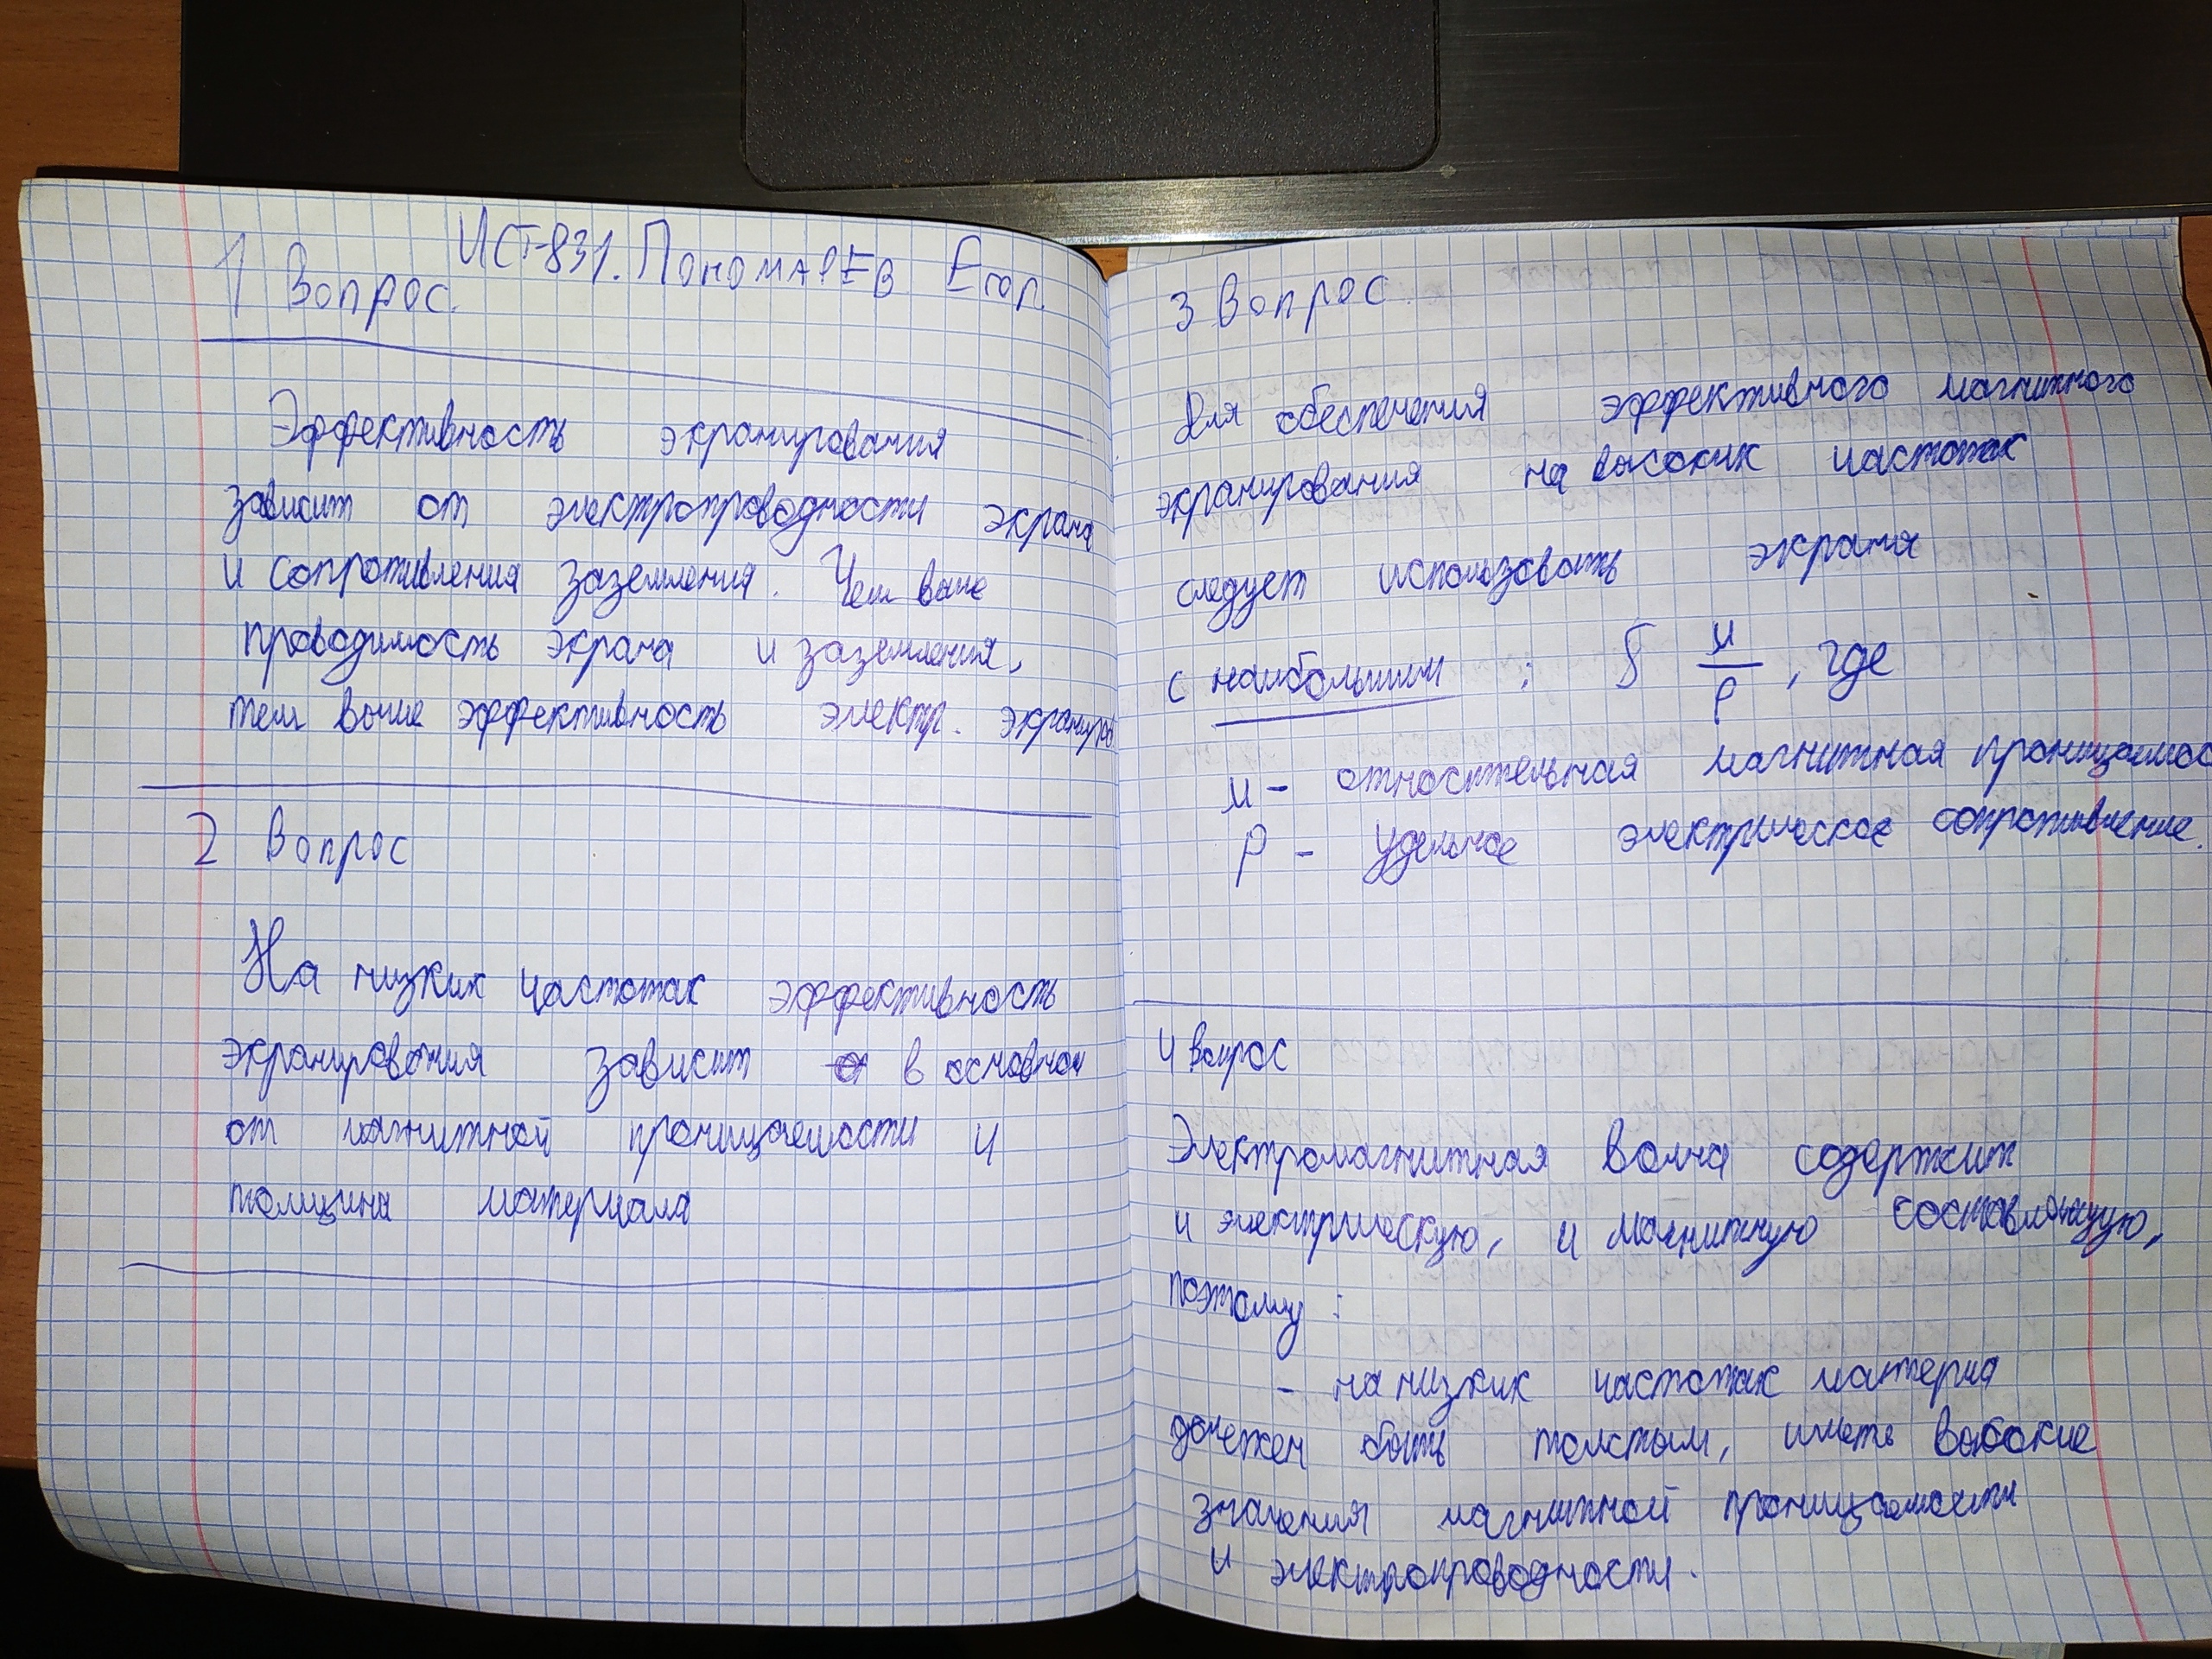 ИСТ-831. Пономарёв Егор.
1 Вопрос.
Эффективность экранирования
зависит от электропроводности экрана
и сопротивления заземления. Чем выше
проводимость экрана и заземления,
тем выше эффективность электр. экраниров
2 Вопрос
На низких частотах эффективность
экранирования зависит в основном
от магнитной проницаемости и
толщины материала
3 Вопрос.
Для обеспечения эффективного магнитного
экранирования на высоких частотах
следует использовать экраны
с наибольшим : μ/ρ, где
μ - относительная магнитная проницаемос
ρ - удельное электрическое сопротивление.
4 вопрос
Электромагнитная волна содержит
и электрическую, и магнитную составляющую,
поэтому :
- на низких частотах материал
должен быть толстым, иметь высокие
значения магнитной проницаемости
и электропроводности.